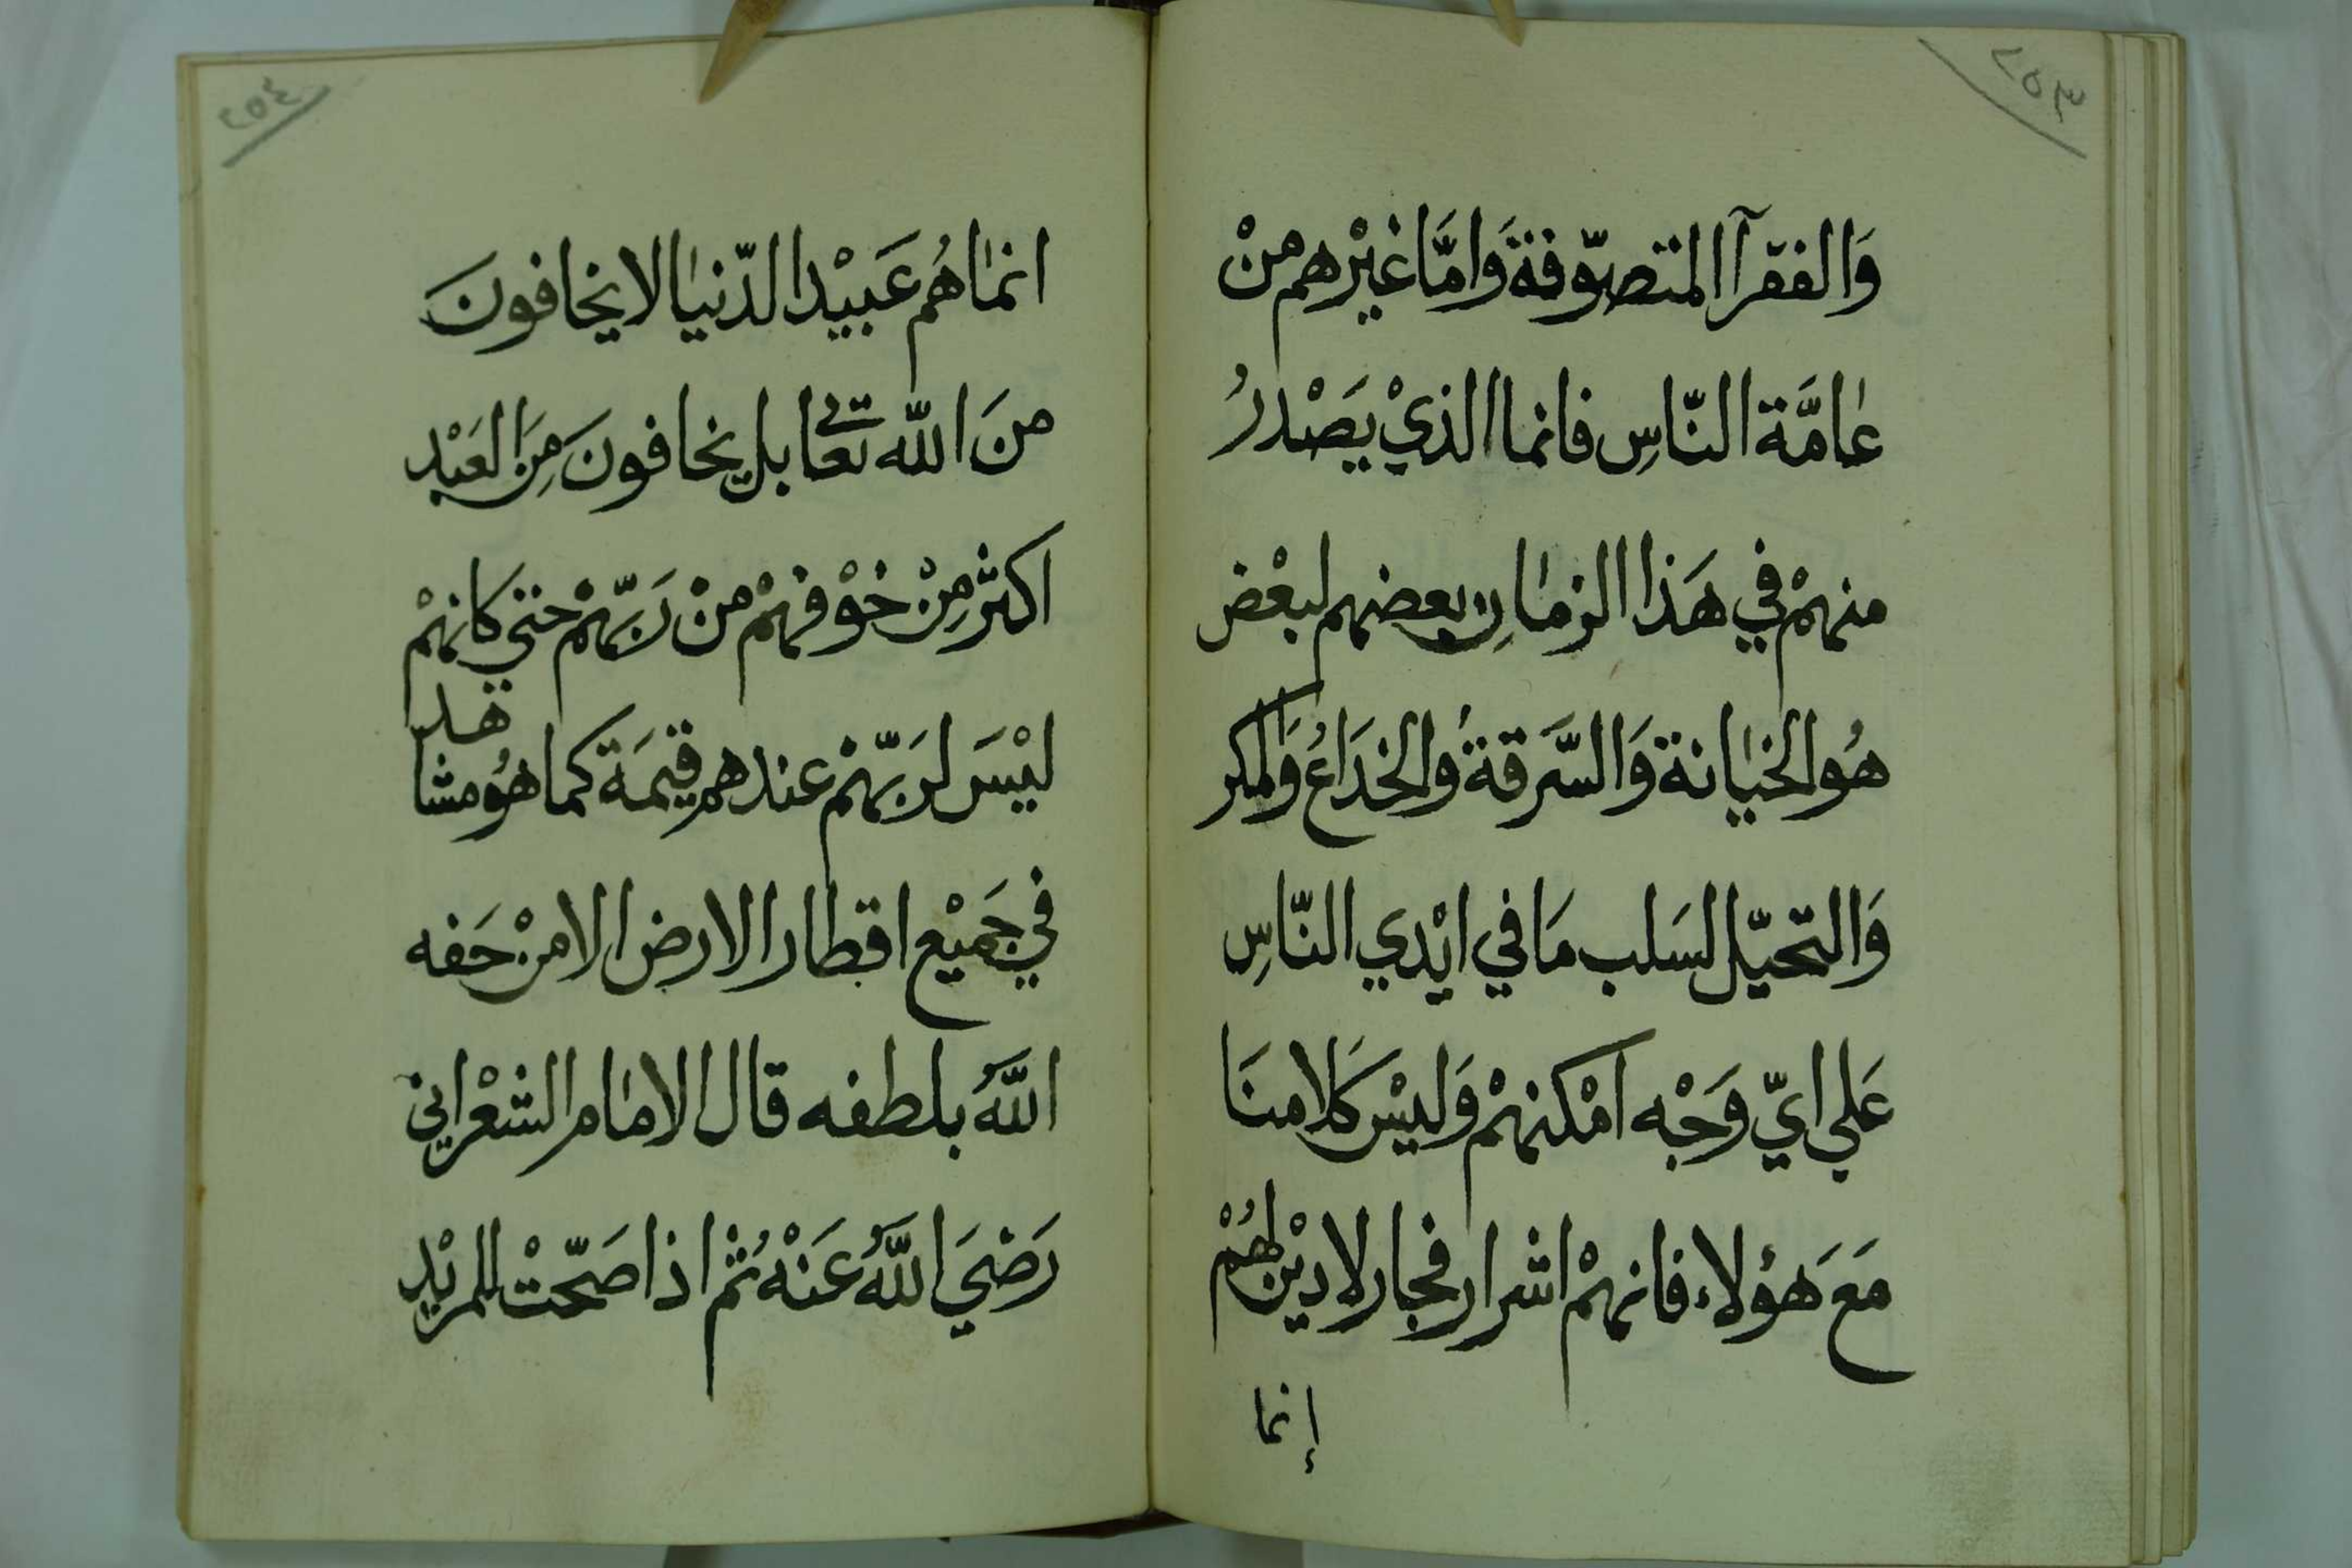 ٢٥٣
وَالفقرآ المتصوّفة وَامَّا غيْرهم منْ
عامَّة النّاسِ فانما الذيْ يَصْدرُ
منهمْ في هَذا الزمانِ بعضهم لبعْض
هُوالخيانة وَالسَّرقةُ والخدَاعُ وَالمكر
وَالتحيّل لسَلب مَا في ايْدي النّاسِ
عَلي ايّ وَجْه امْكنهمْ وَليْس كَلامنَا
مَعَ هؤلاء فانهمْ اشرار فجار لا ديْن لهُمْ
إنما
٢٥٤
انما هُم عَبيْد الدّنيا لا يخافونَ
منَ اللّه تعالى بل يخافونَ مِنَ العَبْد
اكثر مِنْ خوْفهمْ منْ رَبّهمْ حتي كانهمْ
ليْسَ لرَبّهمْ عندهم قيمَة كما هوُ مشاهد
في جَميْع اقطار الارض الا منْ حَفه
اللَّهُ بلطفه قال الامام الشعْراني
رَضيَ اللَّهُ عَنْهُ ثم اذا صَحّتْ للمريْد